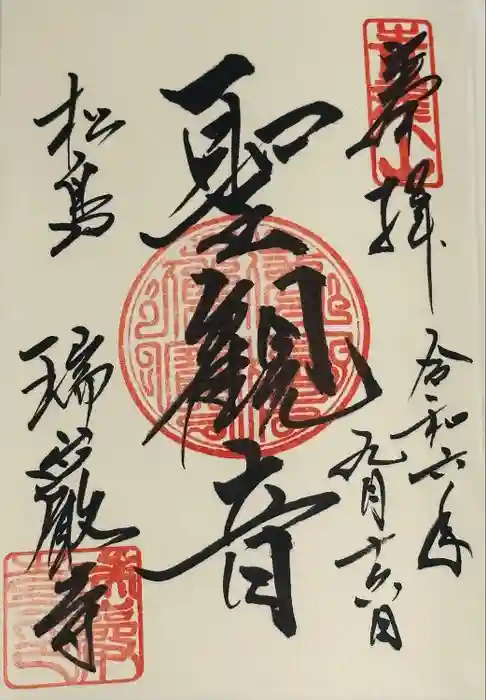 奉拝
令和六年
九月十六日
聖觀音
松島
瑞巌寺